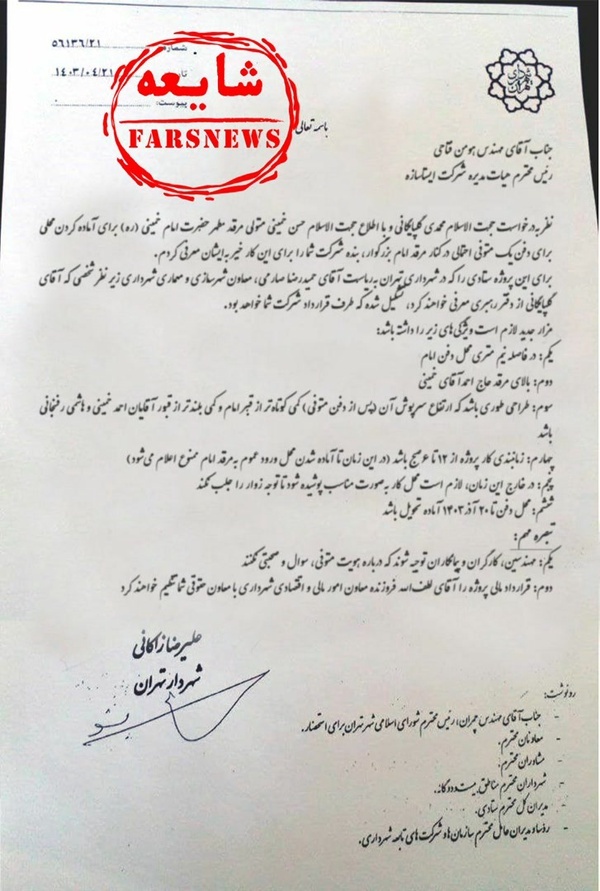 شماره ۵۶۱۳۶/۲۱
تاریخ ۱۴۰۳/۰۴/۲۱
پیوست:
شایعه
FARSNEWS
شهرداری تهران
باسمه تعالی
جناب آقای مهندس هومن فتاحی
رئیس محترم حیات مدیره شرکت ایستاسازه
نظر به درخواست حجت الاسلام محمدی گلپایگانی و با اطلاع حجت الاسلام حسن خمینی متولی مرقد مطهر حضرت امام خمینی (ره) برای آماده کردن محلی
برای دفن یک متوفی احتمالی در کنار مرقد امام بزرگوار، بنده شرکت شما را برای این کار خیر به ایشان معرفی کردم.
برای این پروژه ستادی را که در شهرداری تهران به ریاست آقای حمیدرضا صارمی، معاون شهرسازی و معماری شهرداری زیر نظر شخصی که آقای
گلپایگانی از دفتر رهبری معرفی خواهند کرد، تشکیل شده که طرف قرارداد شرکت شما خواهد بود.
مزار جدید لازم است ویژگی‌های زیر را داشته باشد:
یکم: در فاصله نیم متری محل دفن امام
دوم: بالای مرقد حاج احمد آقای خمینی
سوم: طراحی طوری باشد که ارتفاع سرپوش آن (پس از دفن متوفی) کمی کوتاه‌تر از قبر امام و کمی بلندتر از قبور آقایان احمد خمینی و هاشمی رفسنجانی
باشد
چهارم: زمانبندی کار پروژه از ۱۲ تا ۶ صبح باشد (در این زمان تا آماده شدن محل ورود عموم به مرقد امام ممنوع اعلام می‌شود)
پنجم: در خارج این زمان، لازم است محل کار به صورت مناسب پوشیده شود تا توجه زوار را جلب نکند
ششم: محل دفن تا ۲۰ آذر ۱۴۰۳ آماده تحویل باشد
تبصره مهم:
یکم: مهندسین، کارکران و پیمانکاران توجیه شوند که درباره هویت متوفی، سوال و صحبتی نکنند
دوم: قرارداد مالی پروژه را آقای لطف‌الله فروزنده معاون امور مالی و اقتصادی شهرداری با معاون حقوقی شما تنظیم خواهند کرد
علیرضا زاکانی
شهردار تهران
رونوشت:
- جناب آقای مهندس چمران، رئیس محترم شورای اسلامی شهر تهران برای استحضار.
- معاونان محترم.
- مشاوران محترم.
- شهرداران محترم مناطق بیست و دوگانه.
- مدیران کل محترم ستادی.
- روسا و مدیران عامل محترم سازمان‌ها و شرکت‌های تابعه شهرداری.